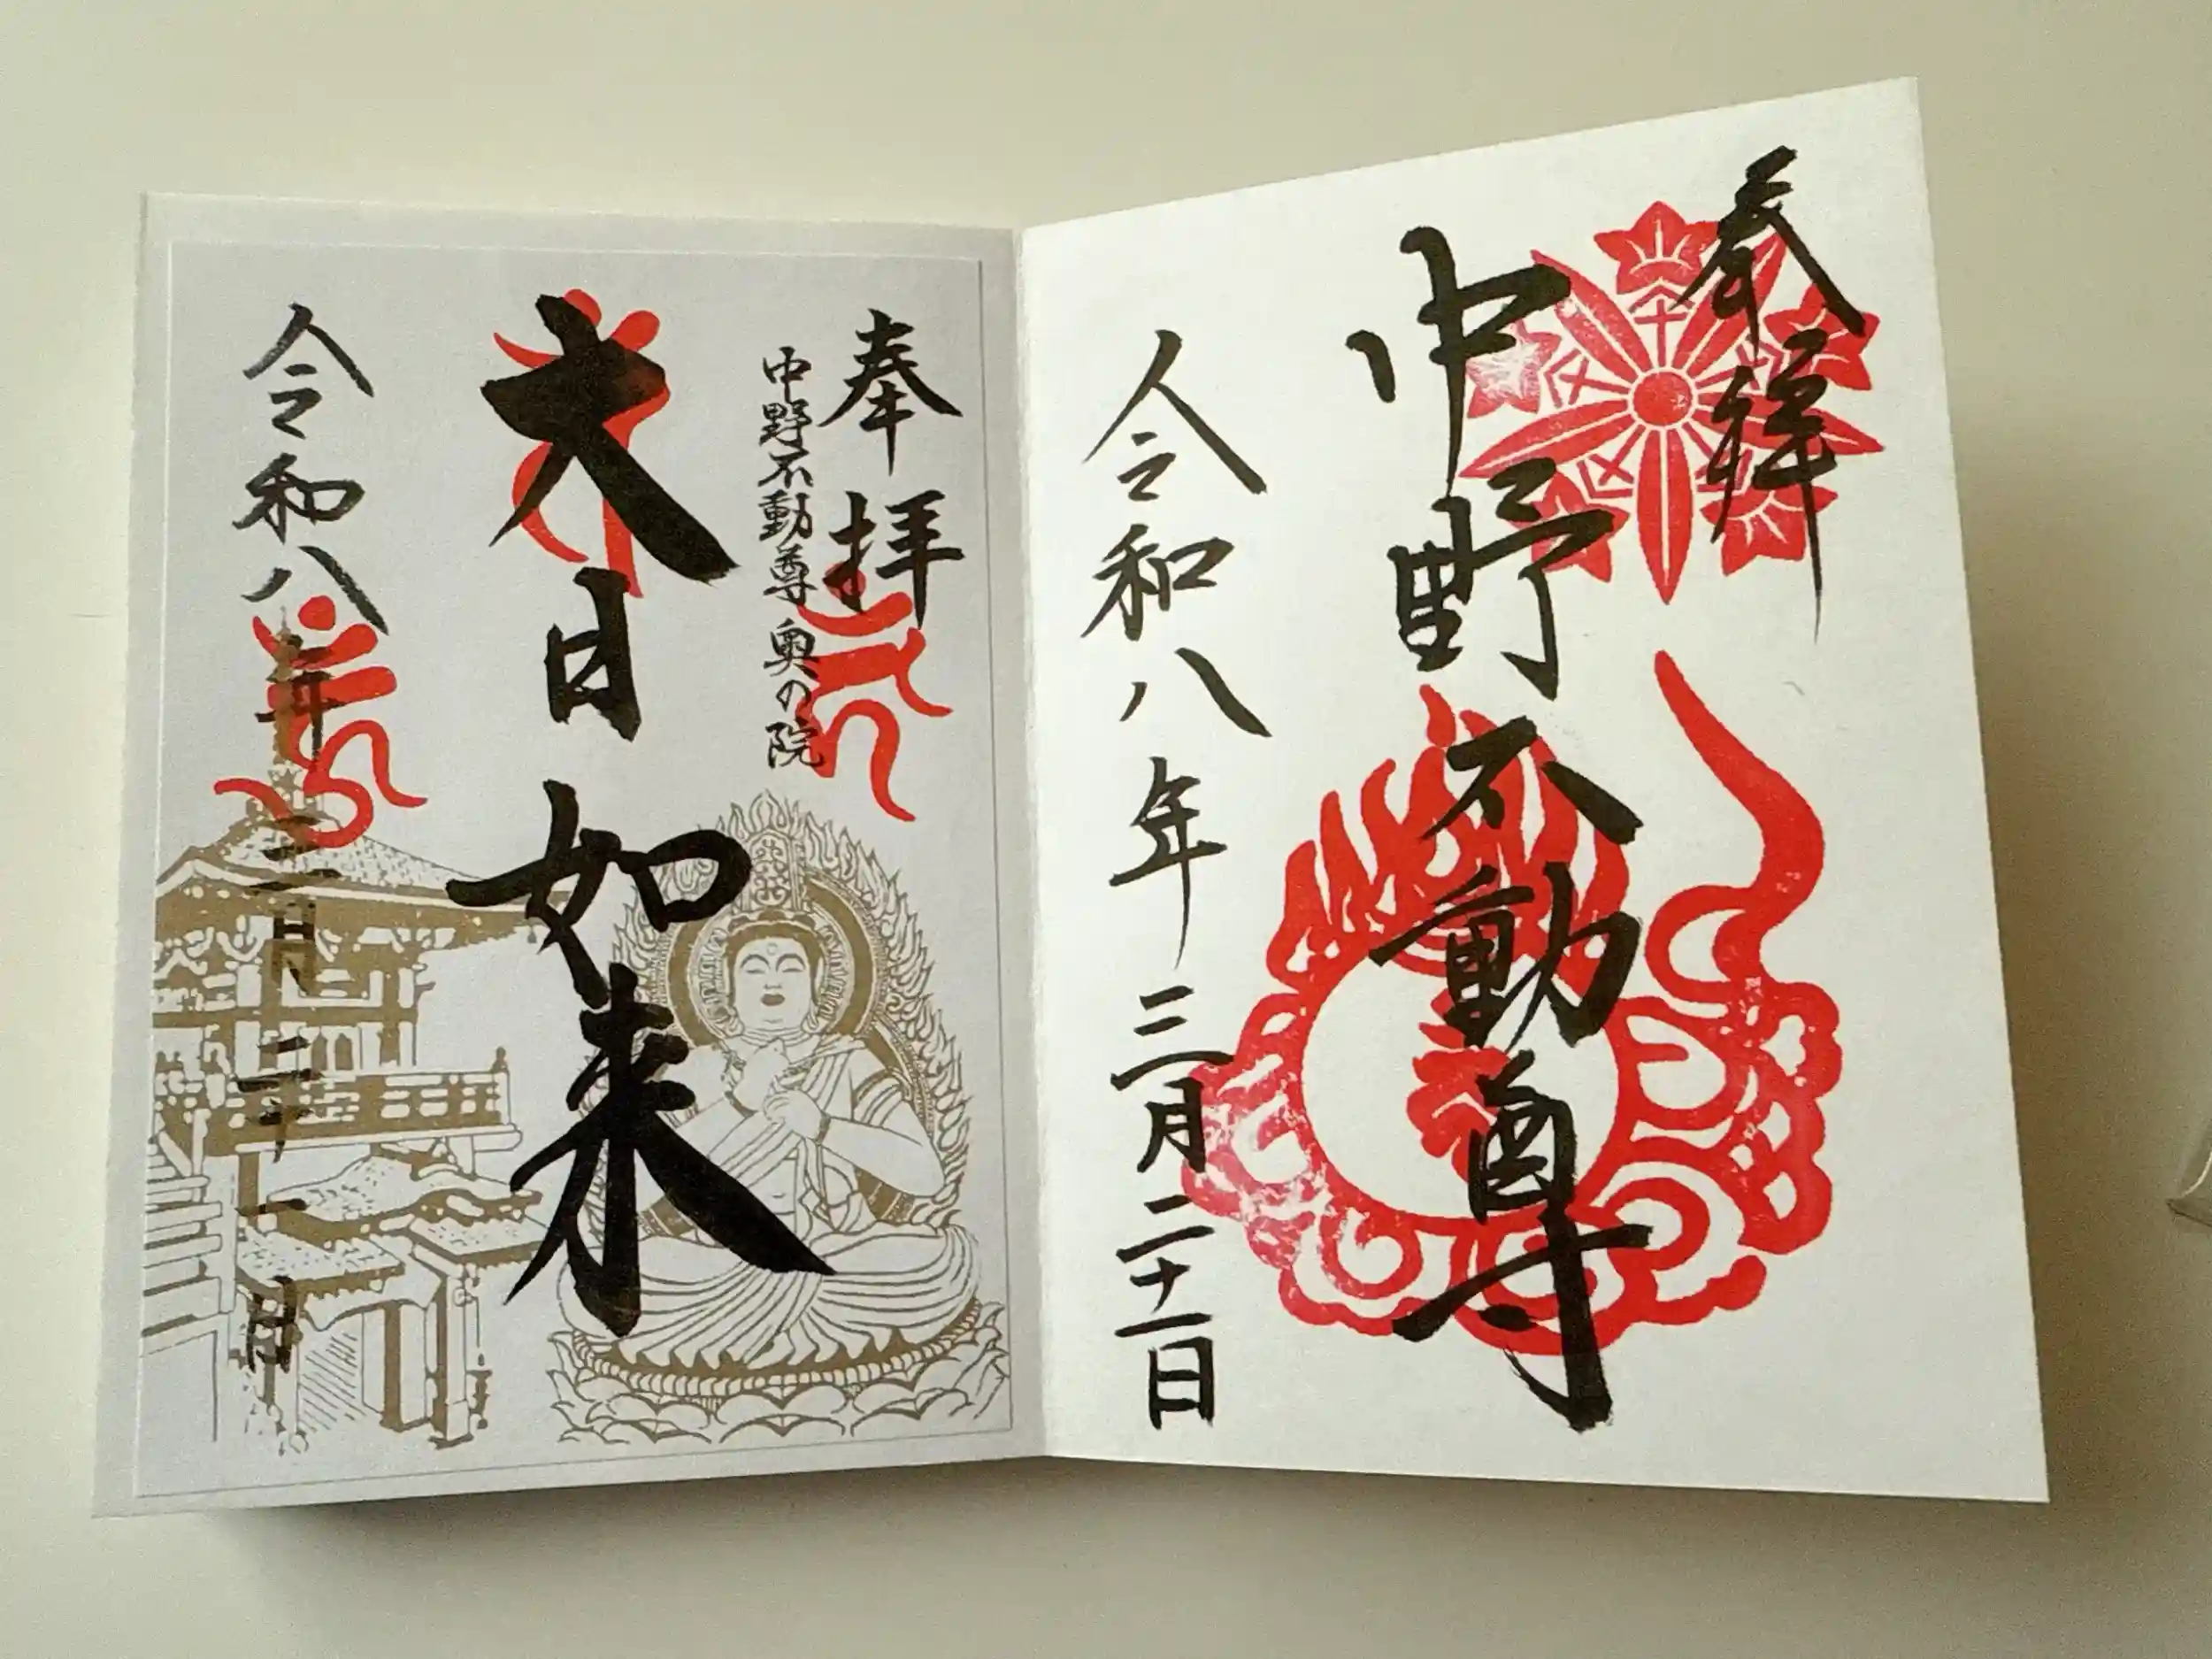 奉拝
中野不動尊
令和八年三月二十一日
奉拝
中野不動尊 奥の院
大日如来
令和八年三月二十一日